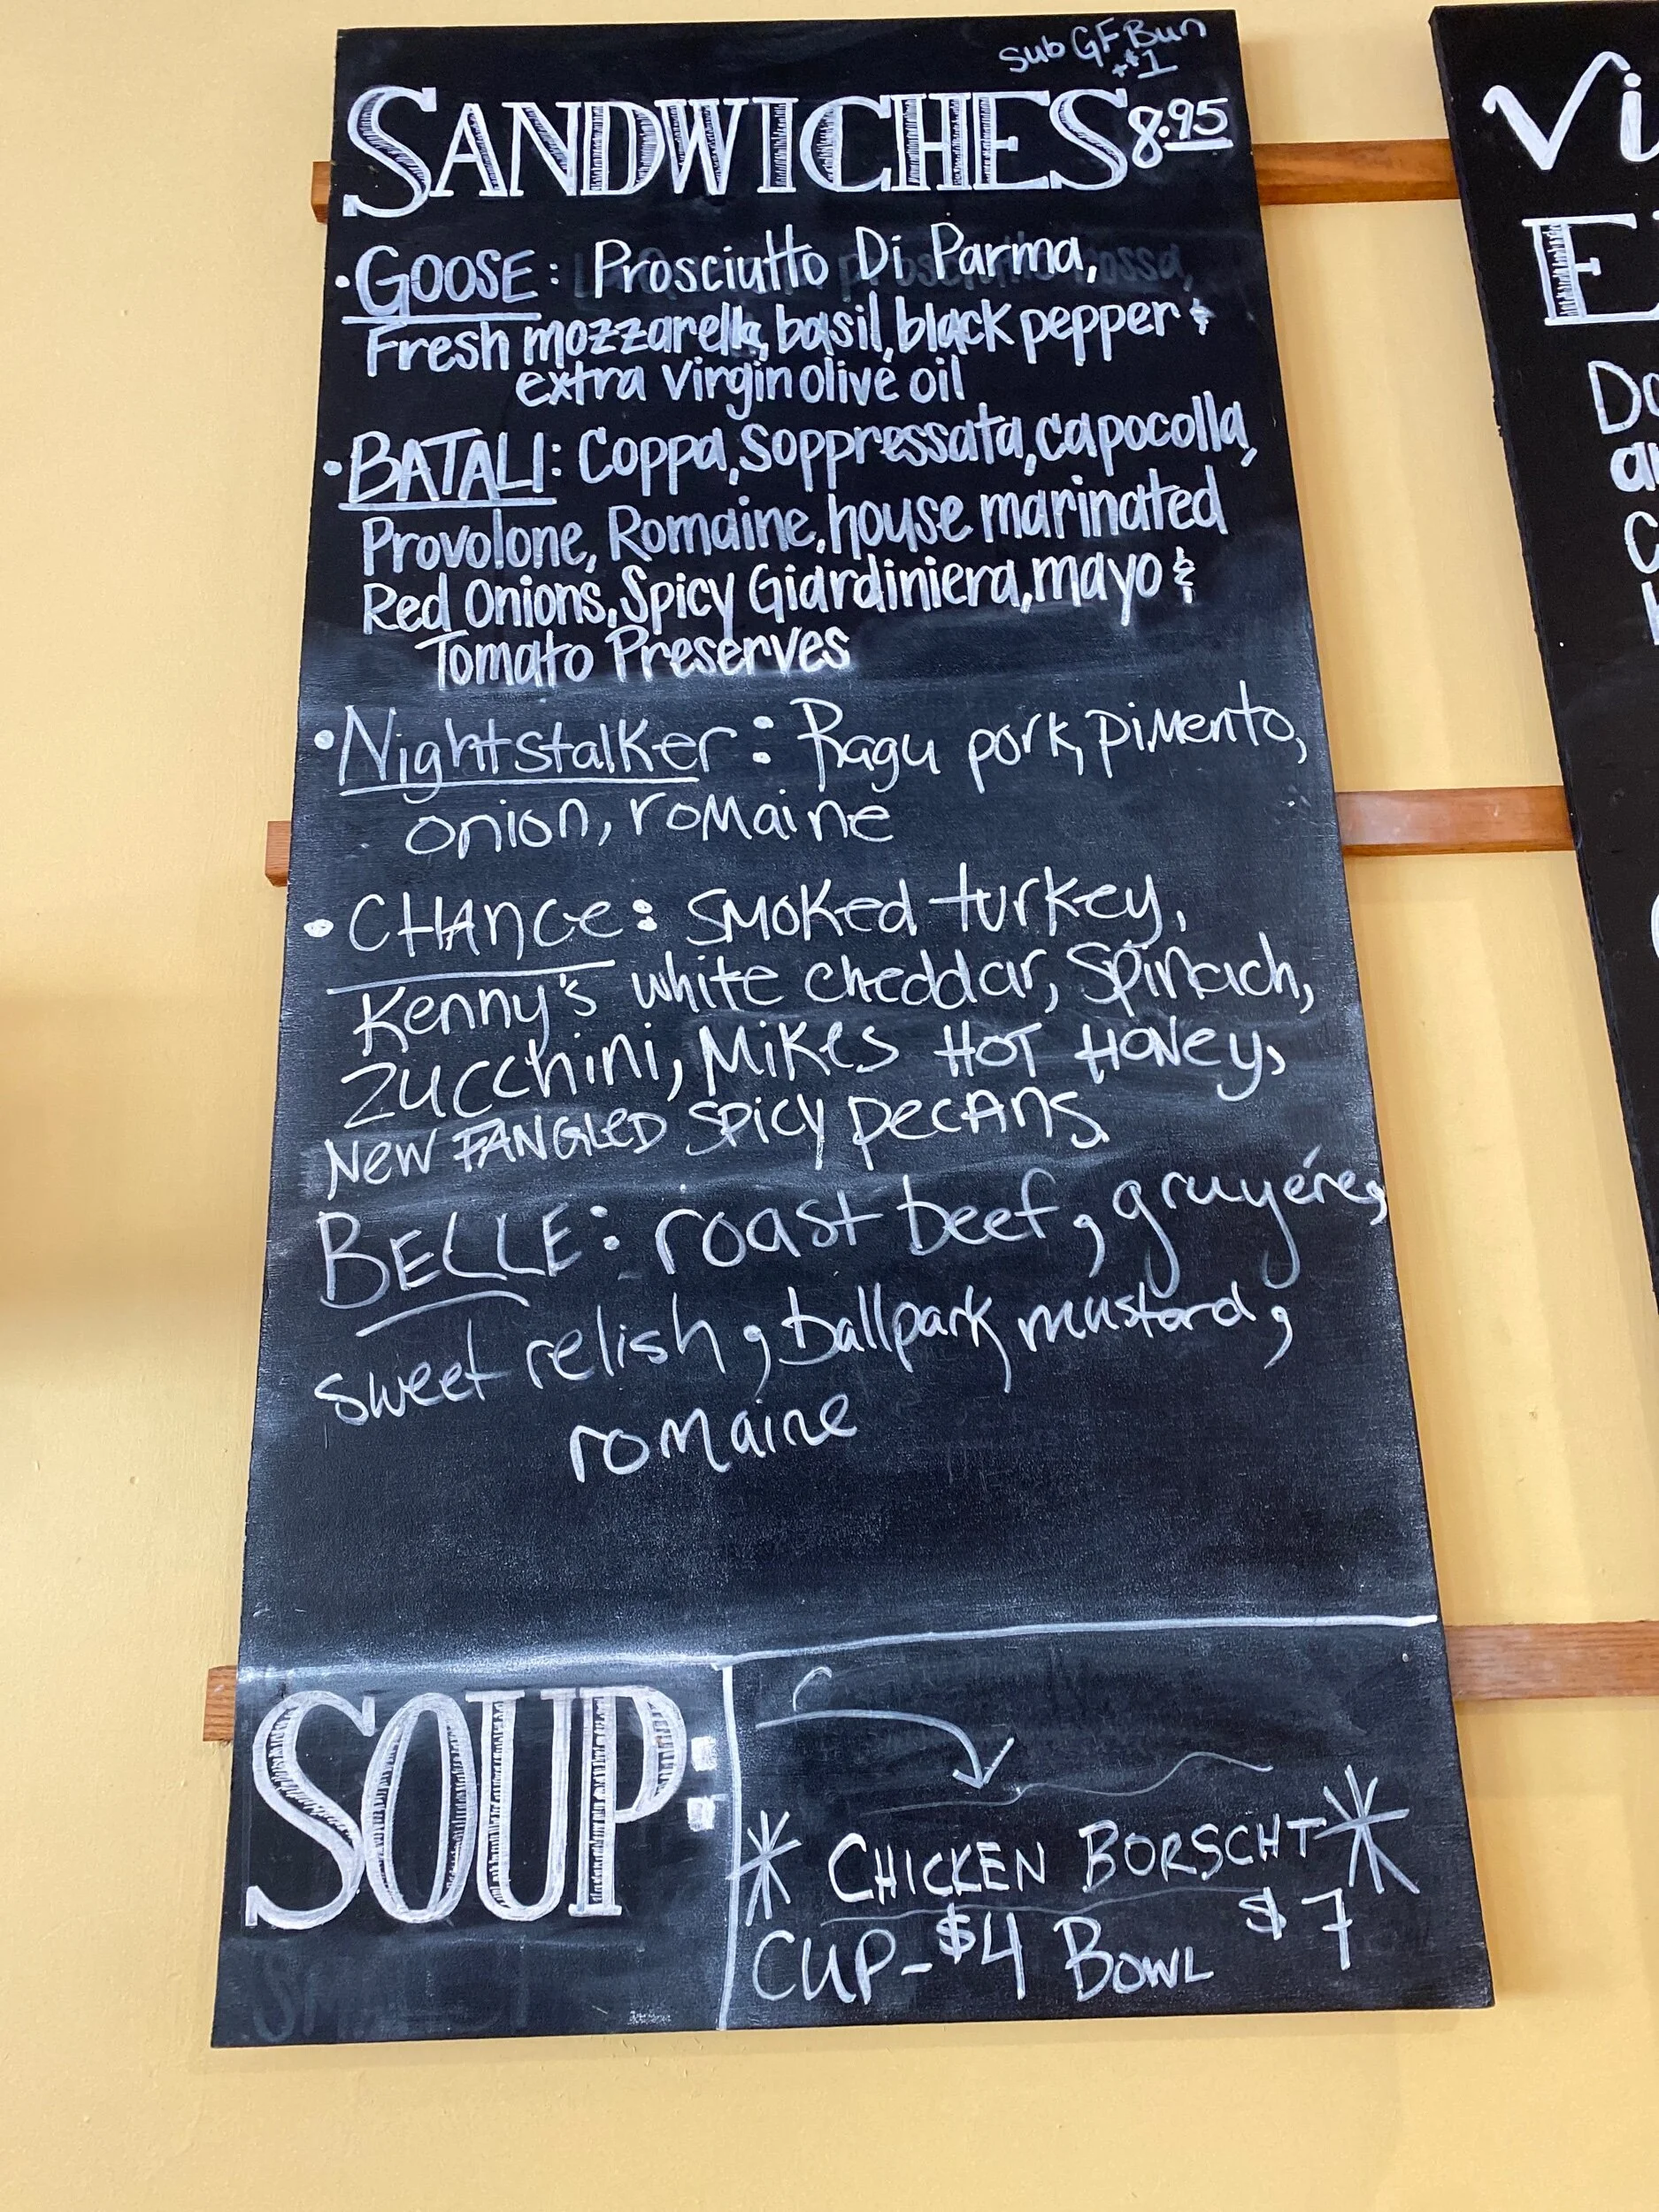 Sub GF Bun
+$1
SANDWICHES 8.95
• GOOSE: Prosciutto Di Parma,
Fresh mozzarella, basil, black pepper &
extra virgin olive oil
• BATALI: Coppa, Soppressata, capocolla,
Provolone, Romaine, house marinated
Red Onions, Spicy Giardiniera, mayo &
Tomato Preserves
• Nightstalker: Ragu pork, pimento,
onion, romaine
• CHANCE: Smoked turkey,
Kenny's white cheddar, Spinach,
Zucchini, MIKES HOT HONEY,
NEW FANGLED SPICY PECANS.
BELLE: roast beef, gruyére,
sweet relish, ballpark mustard,
romaine
SOUP:
* CHICKEN BORSCHT *
CUP-$4 BOWL $7
Vi
E
Do
a
C